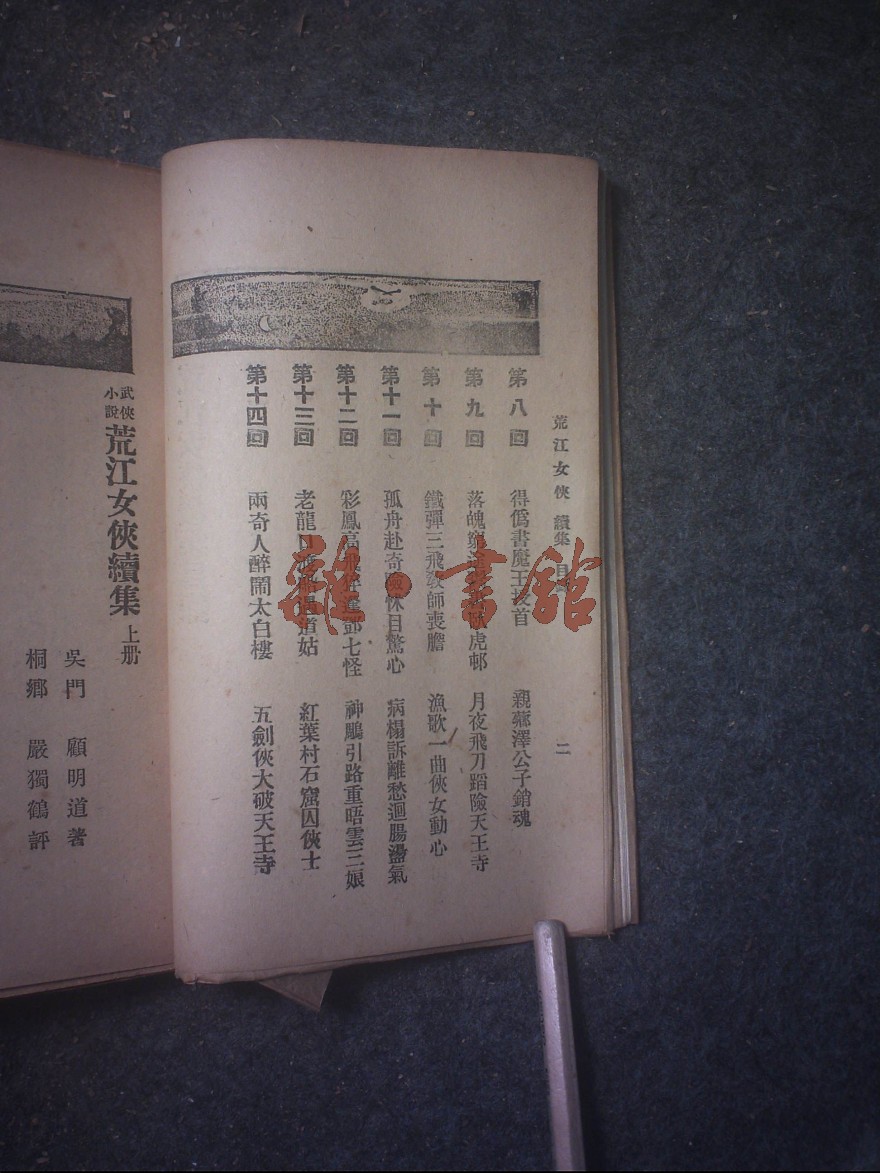 荒江女俠 續集 目 二
第八回 得僞書魔王授首 親薌澤公子銷魂
第九回 落魄窮途 臥虎邨 月夜飛刀蹈險天王寺
第十回 鐵彈三飛敎師喪膽 漁歌一曲俠女動心
第十一回 孤舟赴奇險怵目驚心 病榻訴離愁迴腸盪氣
第十二回 彩鳳高飛 逢鄧七怪 神鵰引路重晤雲三娘
第十三回 老龍口 遇道姑 紅葉村石窟囚俠士
第十四回 兩奇人醉鬧太白樓 五劍俠大破天王寺
武俠小說 荒江女俠續集 上册
吳門 顧明道著
桐鄉 嚴獨鶴評
雜·書館